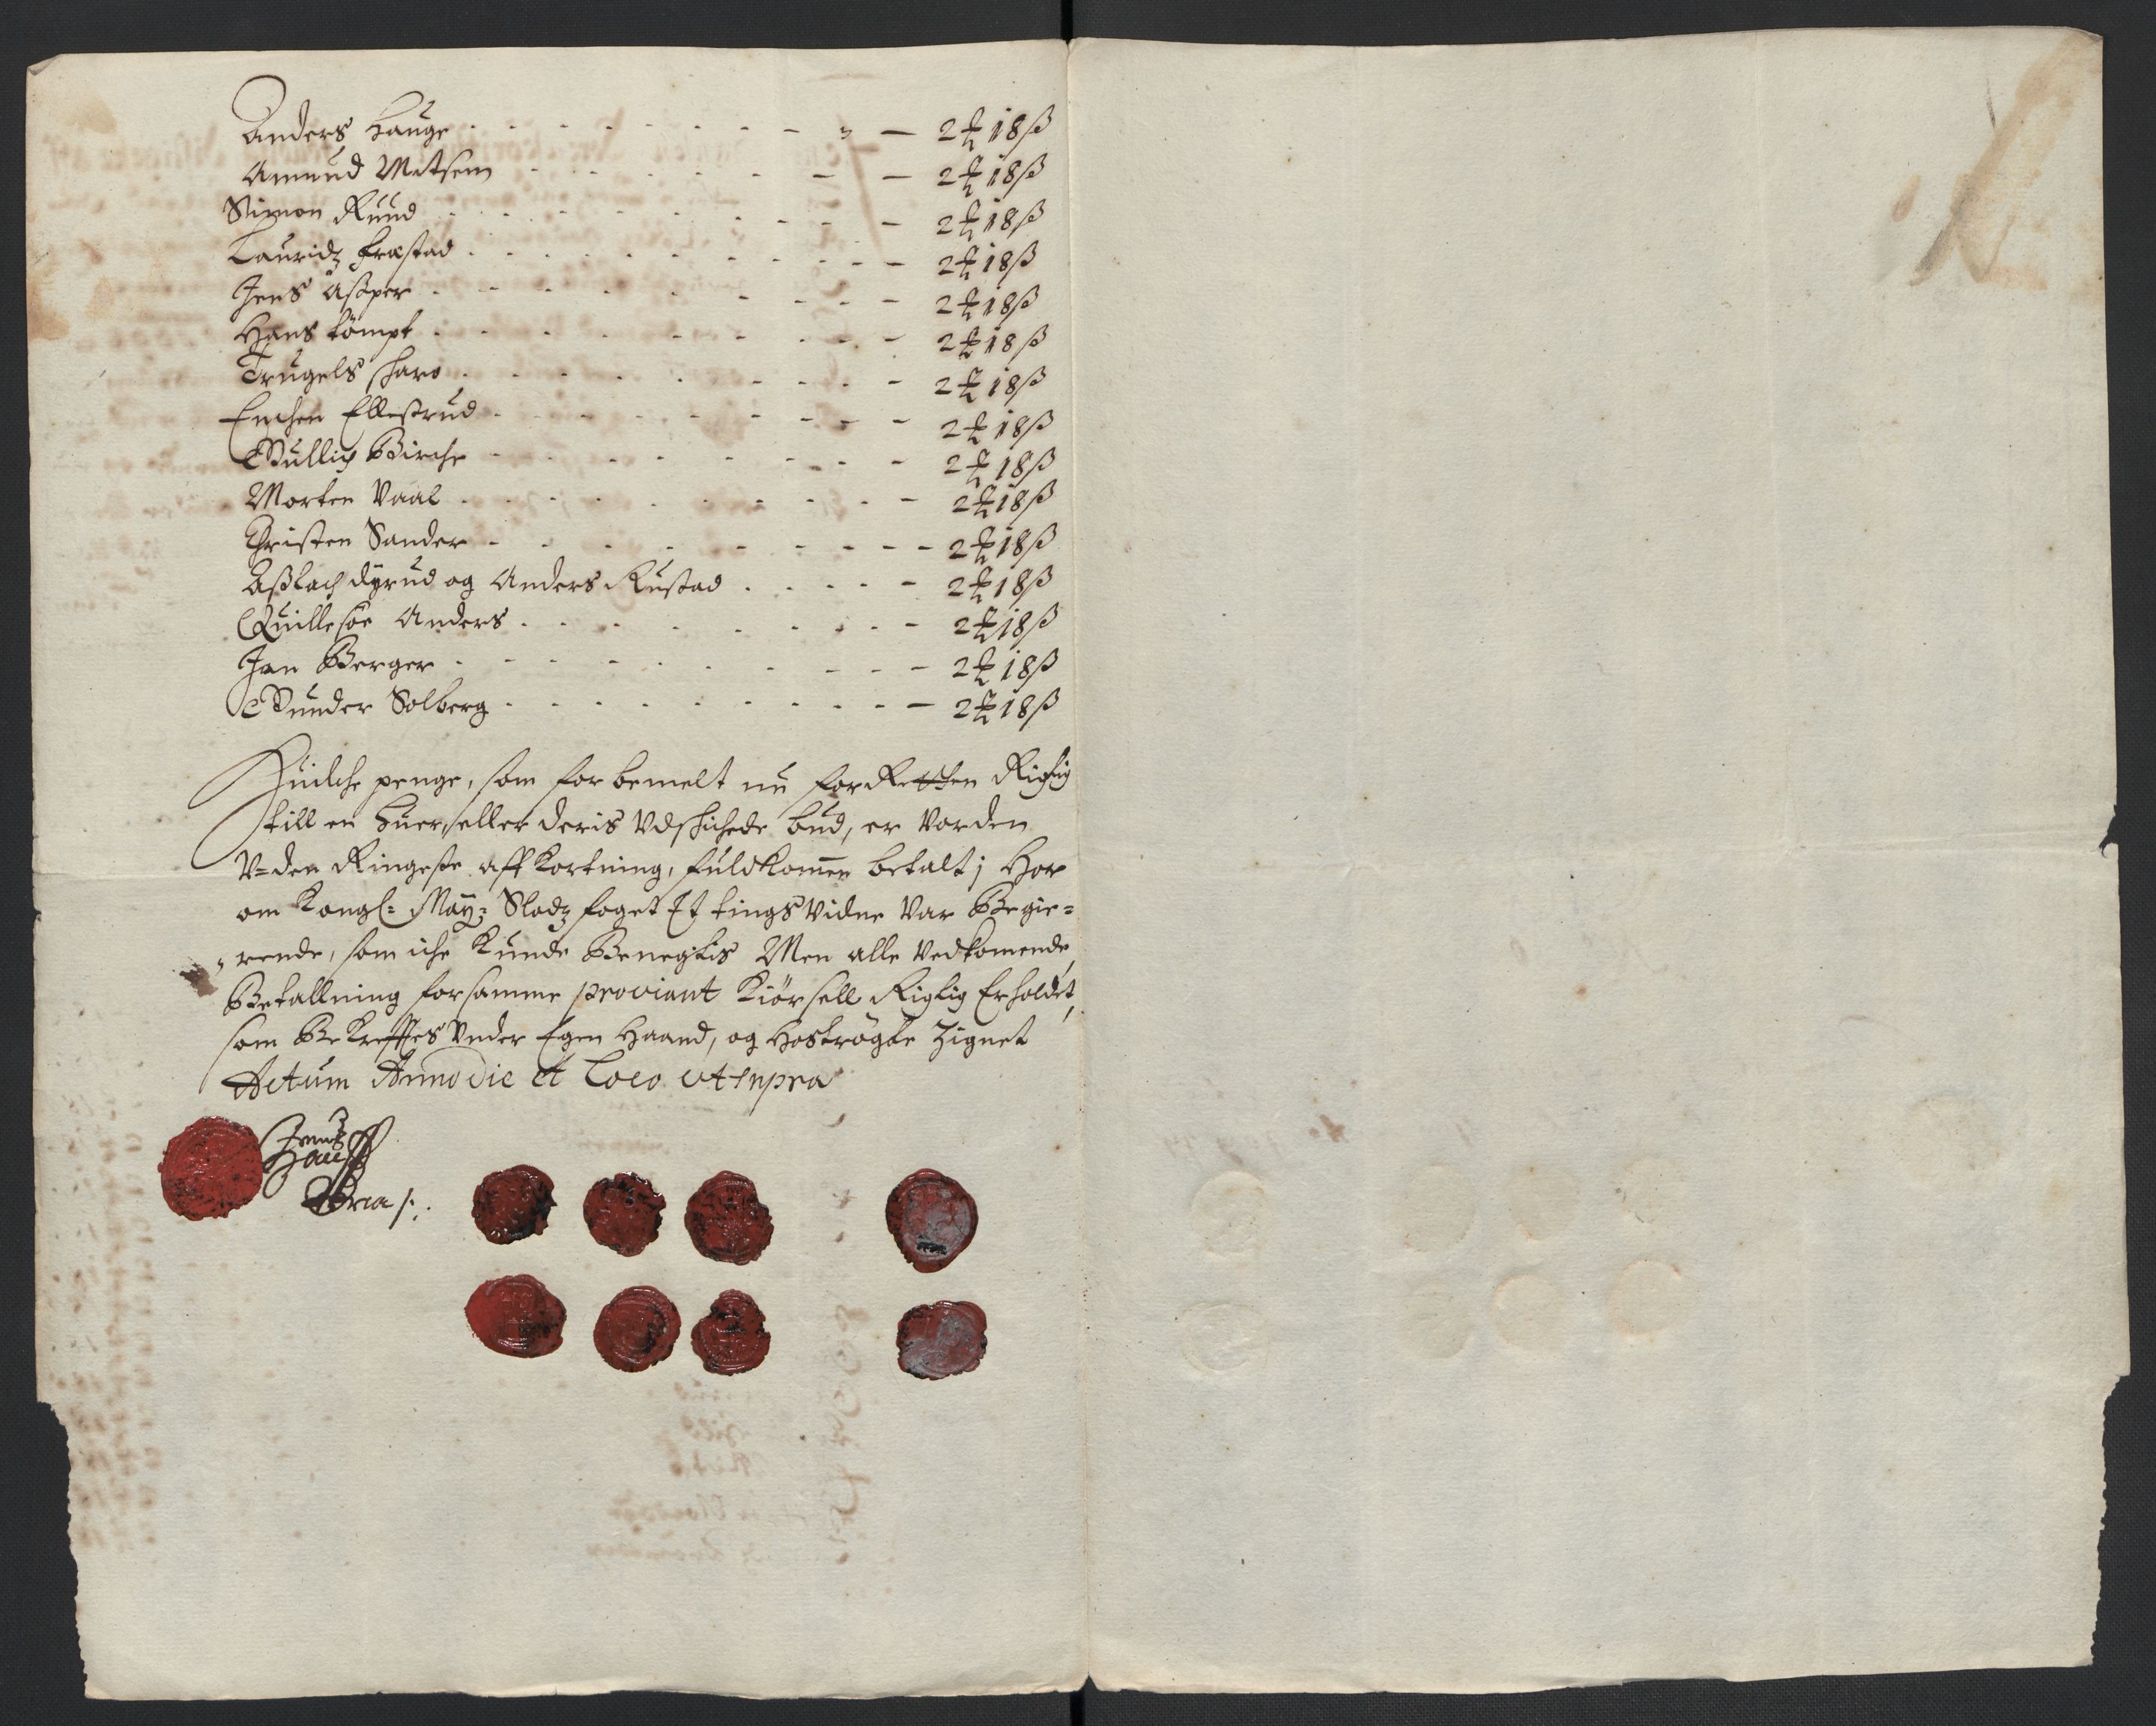 Anders Hauge - - - - - - - - - 2 ₰ 18 ß
Amund Mitsem - - - - - - - 2 ₰ 18 ß
Simon Ruud - - - - - - - - 2 ₰ 18 ß
Lauridz frastad - - - - - - - - 2 ₰ 18 ß
Jens Asper - - - - - - - - 2 ₰ 18 ß
Hans tømpt - - - - - - - - 2 ₰ 18 ß
Trugels Haro - - - - - - - - 2 ₰ 18 ß
Enchen Ellestrud - - - - - - - - 2 ₰ 18 ß
Gullich Birche - - - - - - - - 2 ₰ 18 ß
Morten Vaal - - - - - - - - 2 ₰ 18 ß
Christen Sander - - - - - - - - 2 ₰ 18 ß
Aßlach dyrud og Anders Rustad - - - - - 2 ₰ 18 ß
Quillesøe Anders - - - - - - - - 2 ₰ 18 ß
Jan Berger - - - - - - - - 2 ₰ 18 ß
Gunder Solberg - - - - - - - - 2 ₰ 18 ß
Huilche penge, som forbemelt nu for Retten Rigtig
till en huer, eller deris Udschichede bud, er vorden
V=den Ringeste aff Kortning, fuldkommen betalt; Hor
om Kongl: May: Slodz foget Et tings vidne var Begie=
rende, som iche Kunde Benegtis Men alle vedkomende
Betallning for samme proviant Kiørsell Rigtig Erholdet,
som Bekrefftes Under Egen Haand, og Hostrøgte Zignet
Actum Anno die et Loco ut supra